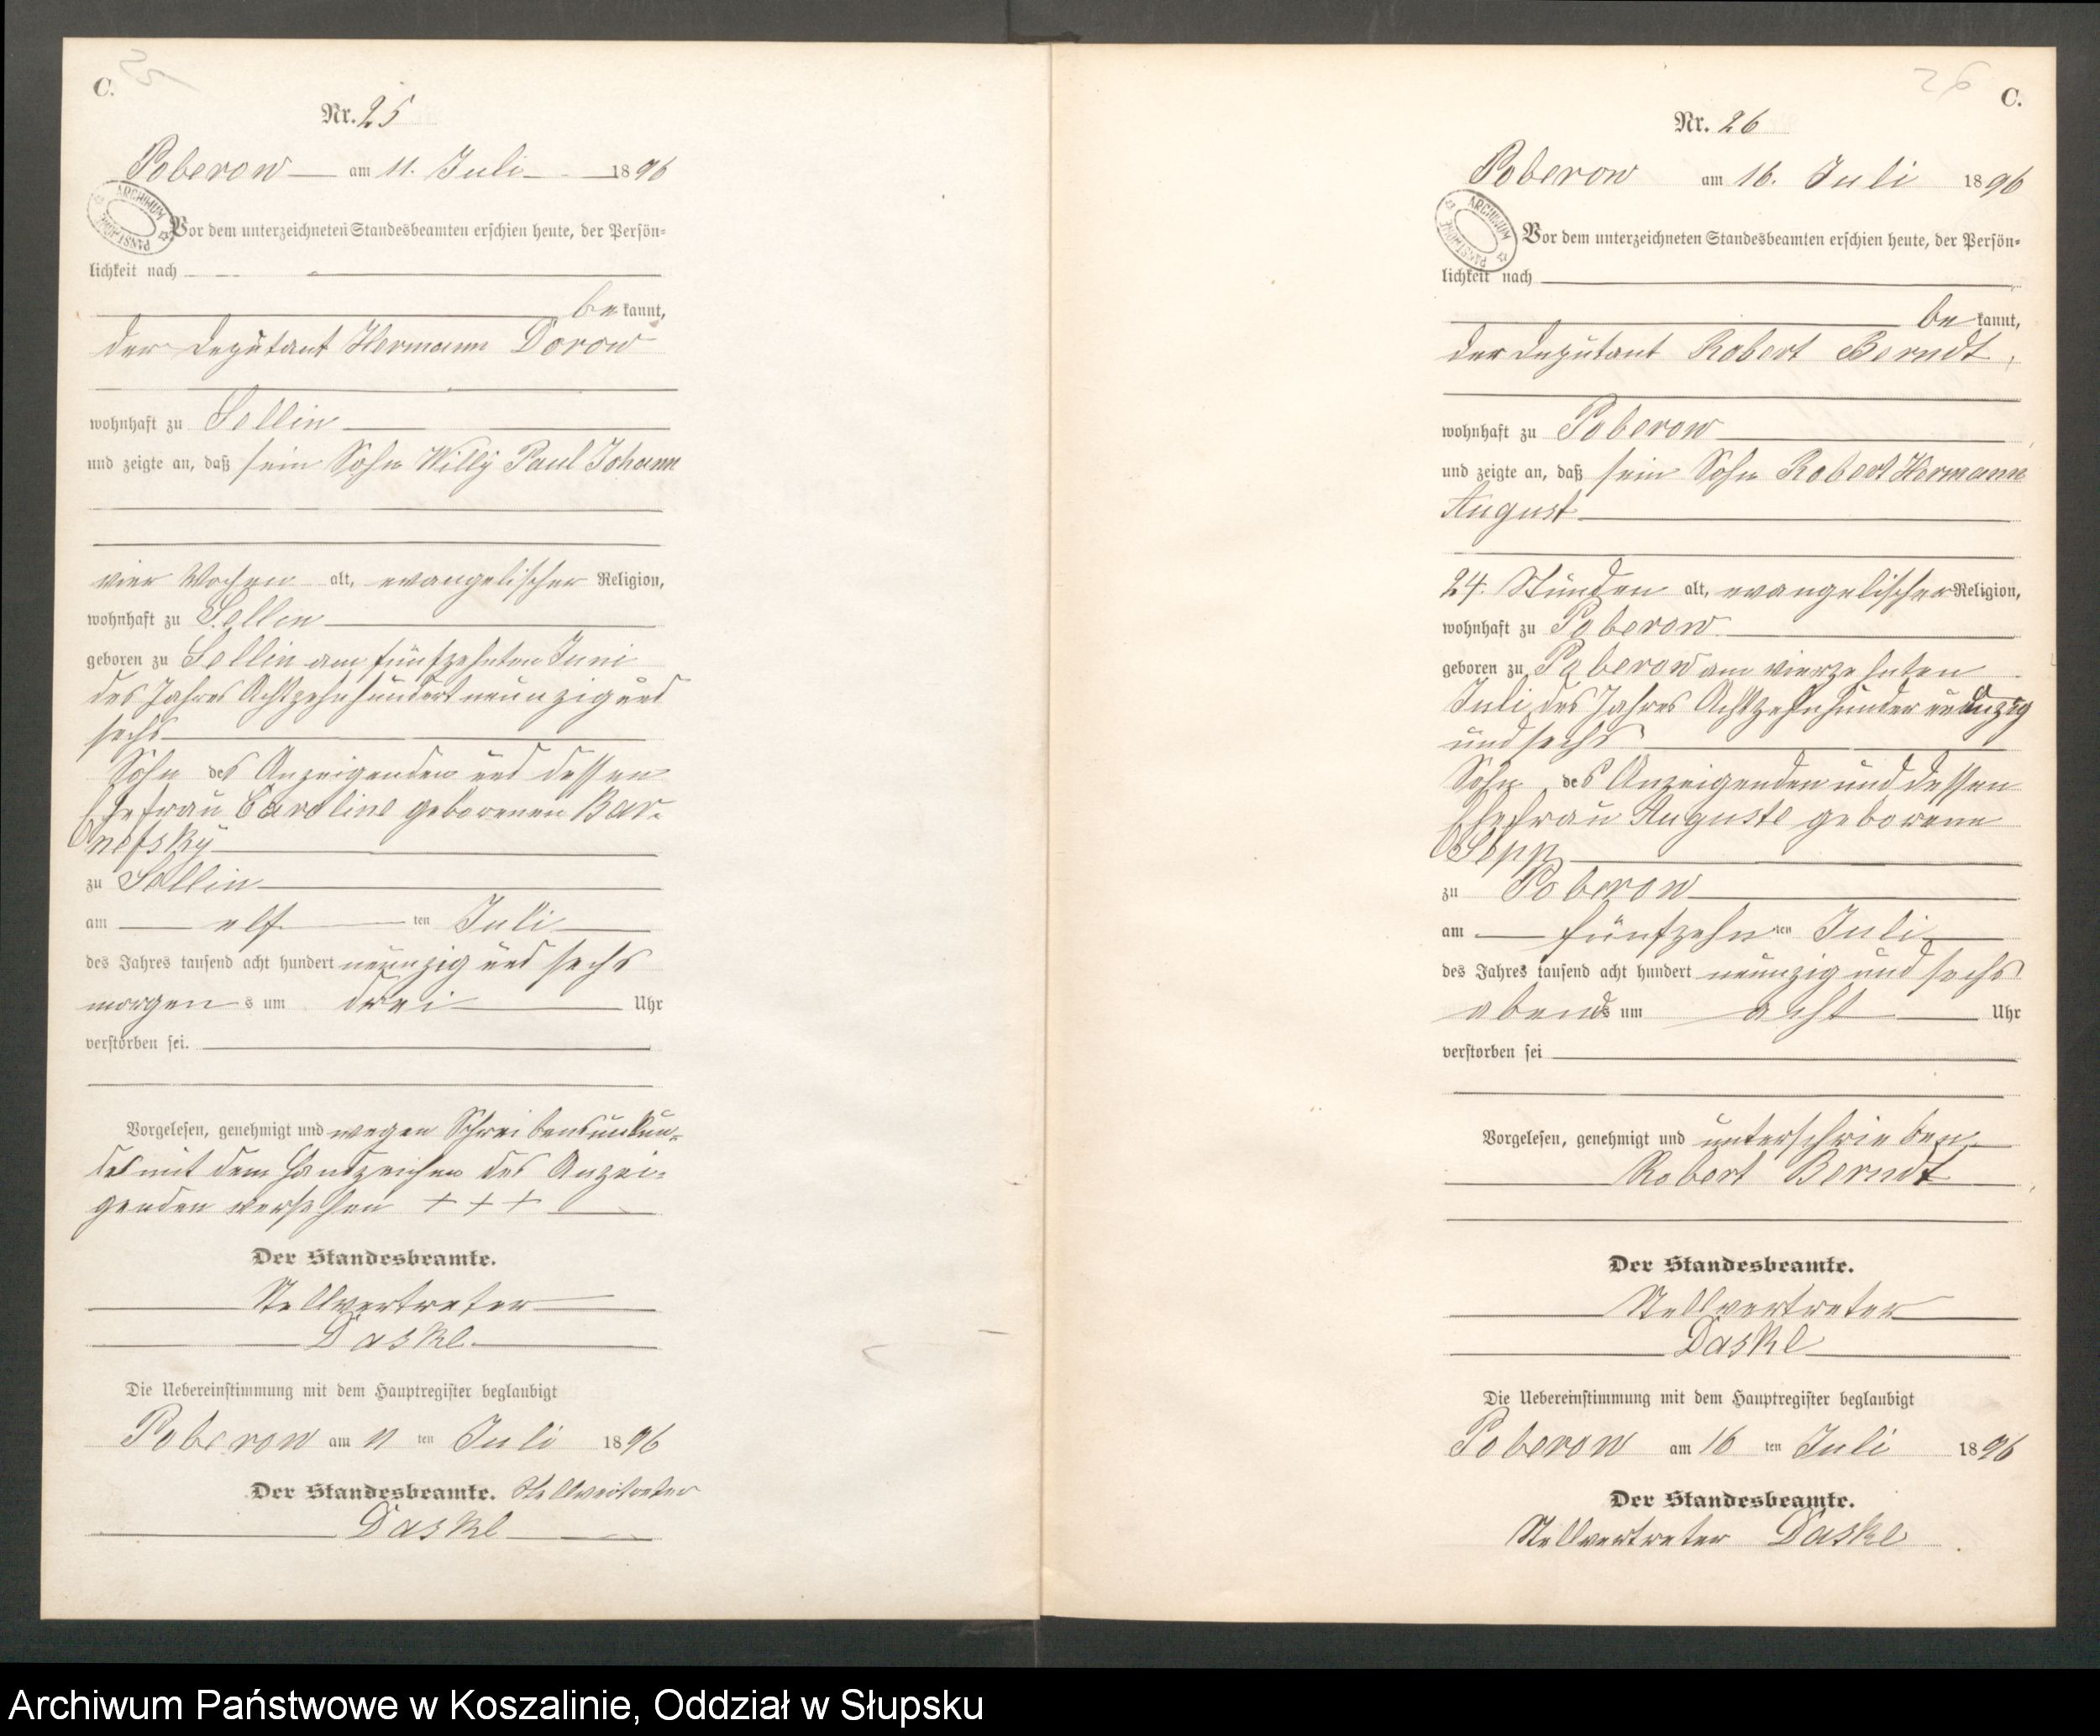 C. 25
Nr. 25
Poberow am 11. Juli 1896
ARCHIWUM PAŃSTWOWE
Vor dem unterzeichneten Standesbeamten erschien heute, der Persön=
lichkeit nach
be kannt,
der Deputant Hermann Dorow
wohnhaft zu Sellin
und zeigte an, daß sein Sohn Willy Paul Johann
vier Wochen alt, evangelischer Religion,
wohnhaft zu Sellin
geboren zu Sellin am fünfzehnten Juni
des Jahres Achtzehnhundert neunzig und
sechs
Sohn des Anzeigenden und dessen
Ehefrau Caroline geborenen Bar=
nefsky
zu Sellin
am elf ten Juli
des Jahres tausend acht hundert neunzig und sechs
morgen s um drei Uhr
verstorben sei.
Vorgelesen, genehmigt und wegen Schreibensunkun=
de mit dem Handzeichen des Anzei=
genden versehen + + +
Der Standesbeamte.
Stellvertreter
Daske
Die Uebereinstimmung mit dem Hauptregister beglaubigt
Poberow am 11 ten Juli 1896
Der Standesbeamte. Stellvertreter
Daske
26 C.
Nr. 26
Poberow am 16. Juli 1896
ARCHIWUM PAŃSTWOWE
Vor dem unterzeichneten Standesbeamten erschien heute, der Persön=
lichkeit nach
be kannt,
der Deputant Robert Berndt,
wohnhaft zu Poberow
und zeigte an, daß sein Sohn Robert Hermann
August
24. Stunden alt, evangelischer Religion,
wohnhaft zu Poberow
geboren zu Poberow am vierzehnten
Juli des Jahres Achtzehnhunder neunzig
und sechs
Sohn des Anzeigenden und dessen
Ehefrau Auguste geborene
Sepp
zu Poberow
am fünfzehn ten Juli
des Jahres tausend acht hundert neunzig und sechs
abends um acht Uhr
verstorben sei
Vorgelesen, genehmigt und unterschrieben
Robert Berndt
Der Standesbeamte.
Stellvertreter
Daske
Die Uebereinstimmung mit dem Hauptregister beglaubigt
Poberow am 16 ten Juli 1896
Der Standesbeamte.
Stellvertreter Daske
Archiwum Państwowe w Koszalinie, Oddział w Słupsku